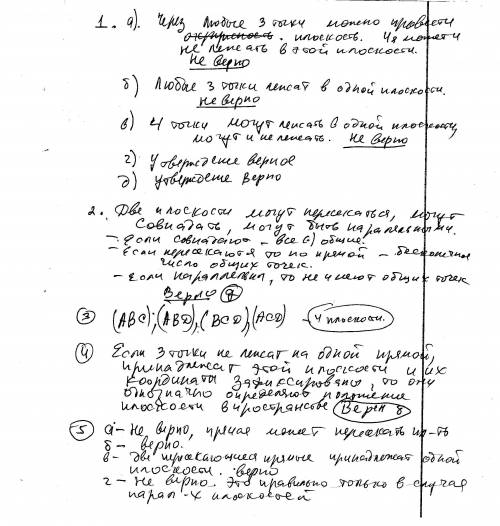 1. а). Через любые 3 точки можно провести
окружность. плоскость. 4я может и
не лежать в этой плоскости.
Не верно
б) Любые 3 точки лежат в одной плоскости.
Не верно
в) 4 точки могут лежать в одной плоскости,
могут и не лежать. Не верно
г) Утверждение верное
д) Утверждение верно
2. Две плоскости могут пересекаться, могут
совпадать, могут быть параллельными.
- Если совпадают - все общие.
- Если пересекаются то по прямой - бесконечное
число общих точек.
- Если параллельны, то не имеют общих точек
Верно
3 (ABC); (ABD), (BCD), (ACD) - 4 плоскости.
4 Если 3 точки не лежат на одной прямой,
принадлежат этой плоскости и их
координаты зафиксированы, то они
однозначно определяют положение
плоскости в пространстве Верн б
5 а - Не верно, прямая может пересекать пл-ть
б - верно.
в - две пересекающиеся прямые принадлежат одной
плоскости. верно
г - Не верно. Это правильно только в случае
парал-х плоскостей